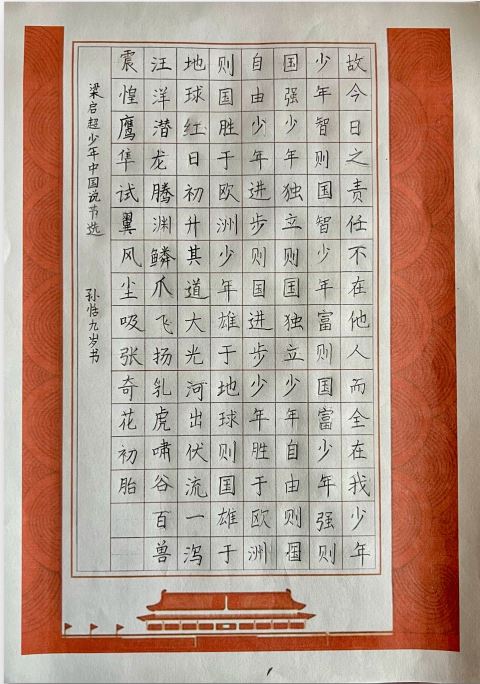 故今日之责任不在他人而全在我少年
少年智则国智少年富则国富少年强则
国强少年独立则国独立少年自由则国
自由少年进步则国进步少年胜于欧洲
则国胜于欧洲少年雄于地球则国雄于
地球红日初升其道大光河出伏流一泻
汪洋潜龙腾渊鳞爪飞扬乳虎啸谷百兽
震惶鹰隼试翼风尘吸张奇花初胎
梁启超少年中国说节选
孙恬九岁书